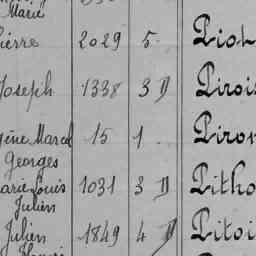 Marie
Pierre 2029 5. Piot
Joseph 1338 3 D Pirois
gène Marcel 15 1 Piron
Georges
arie Louis 1031 3 D Pitho
Julien
Julien 1849 4 D Pitoi